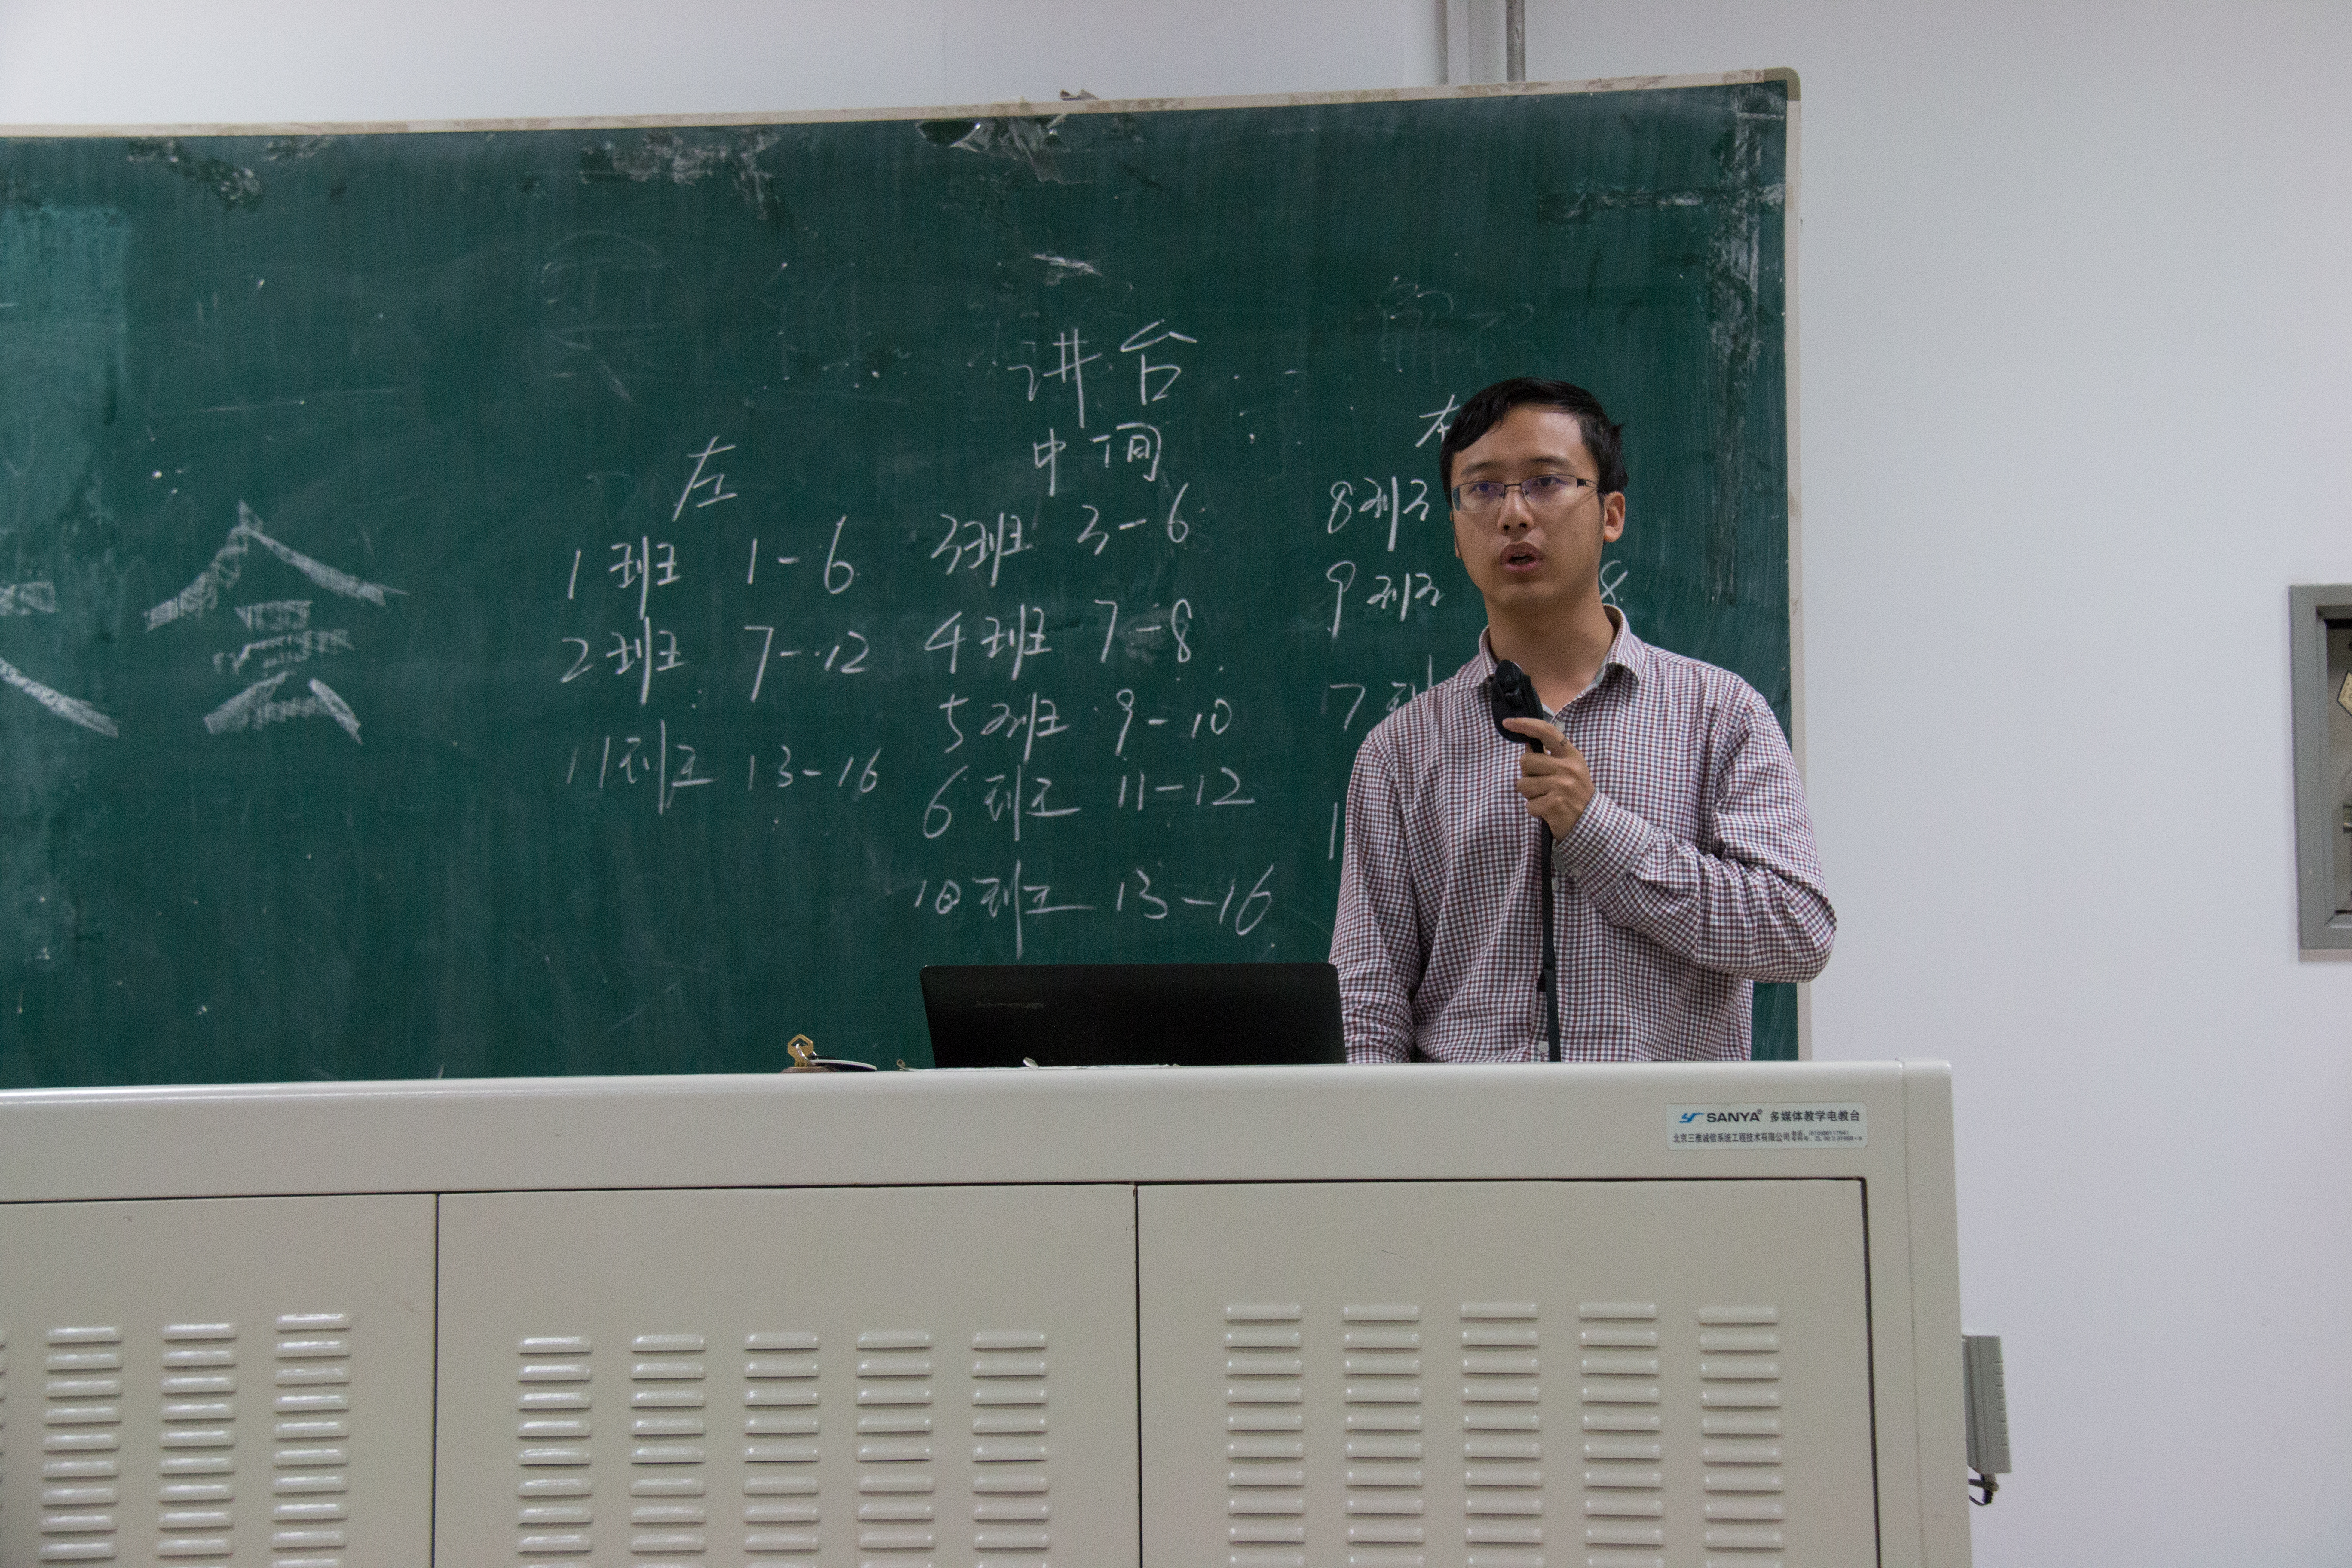 会
讲台
左
中间
1班 1-6
2班 7-12
11班 13-16
3班 3-6
4班 7-8
5班 9-10
6班 11-12
10班 13-16
8班
9班 8
7班
SANYA® 多媒体教学电教台
北京三雅诚信系统工程技术有限公司